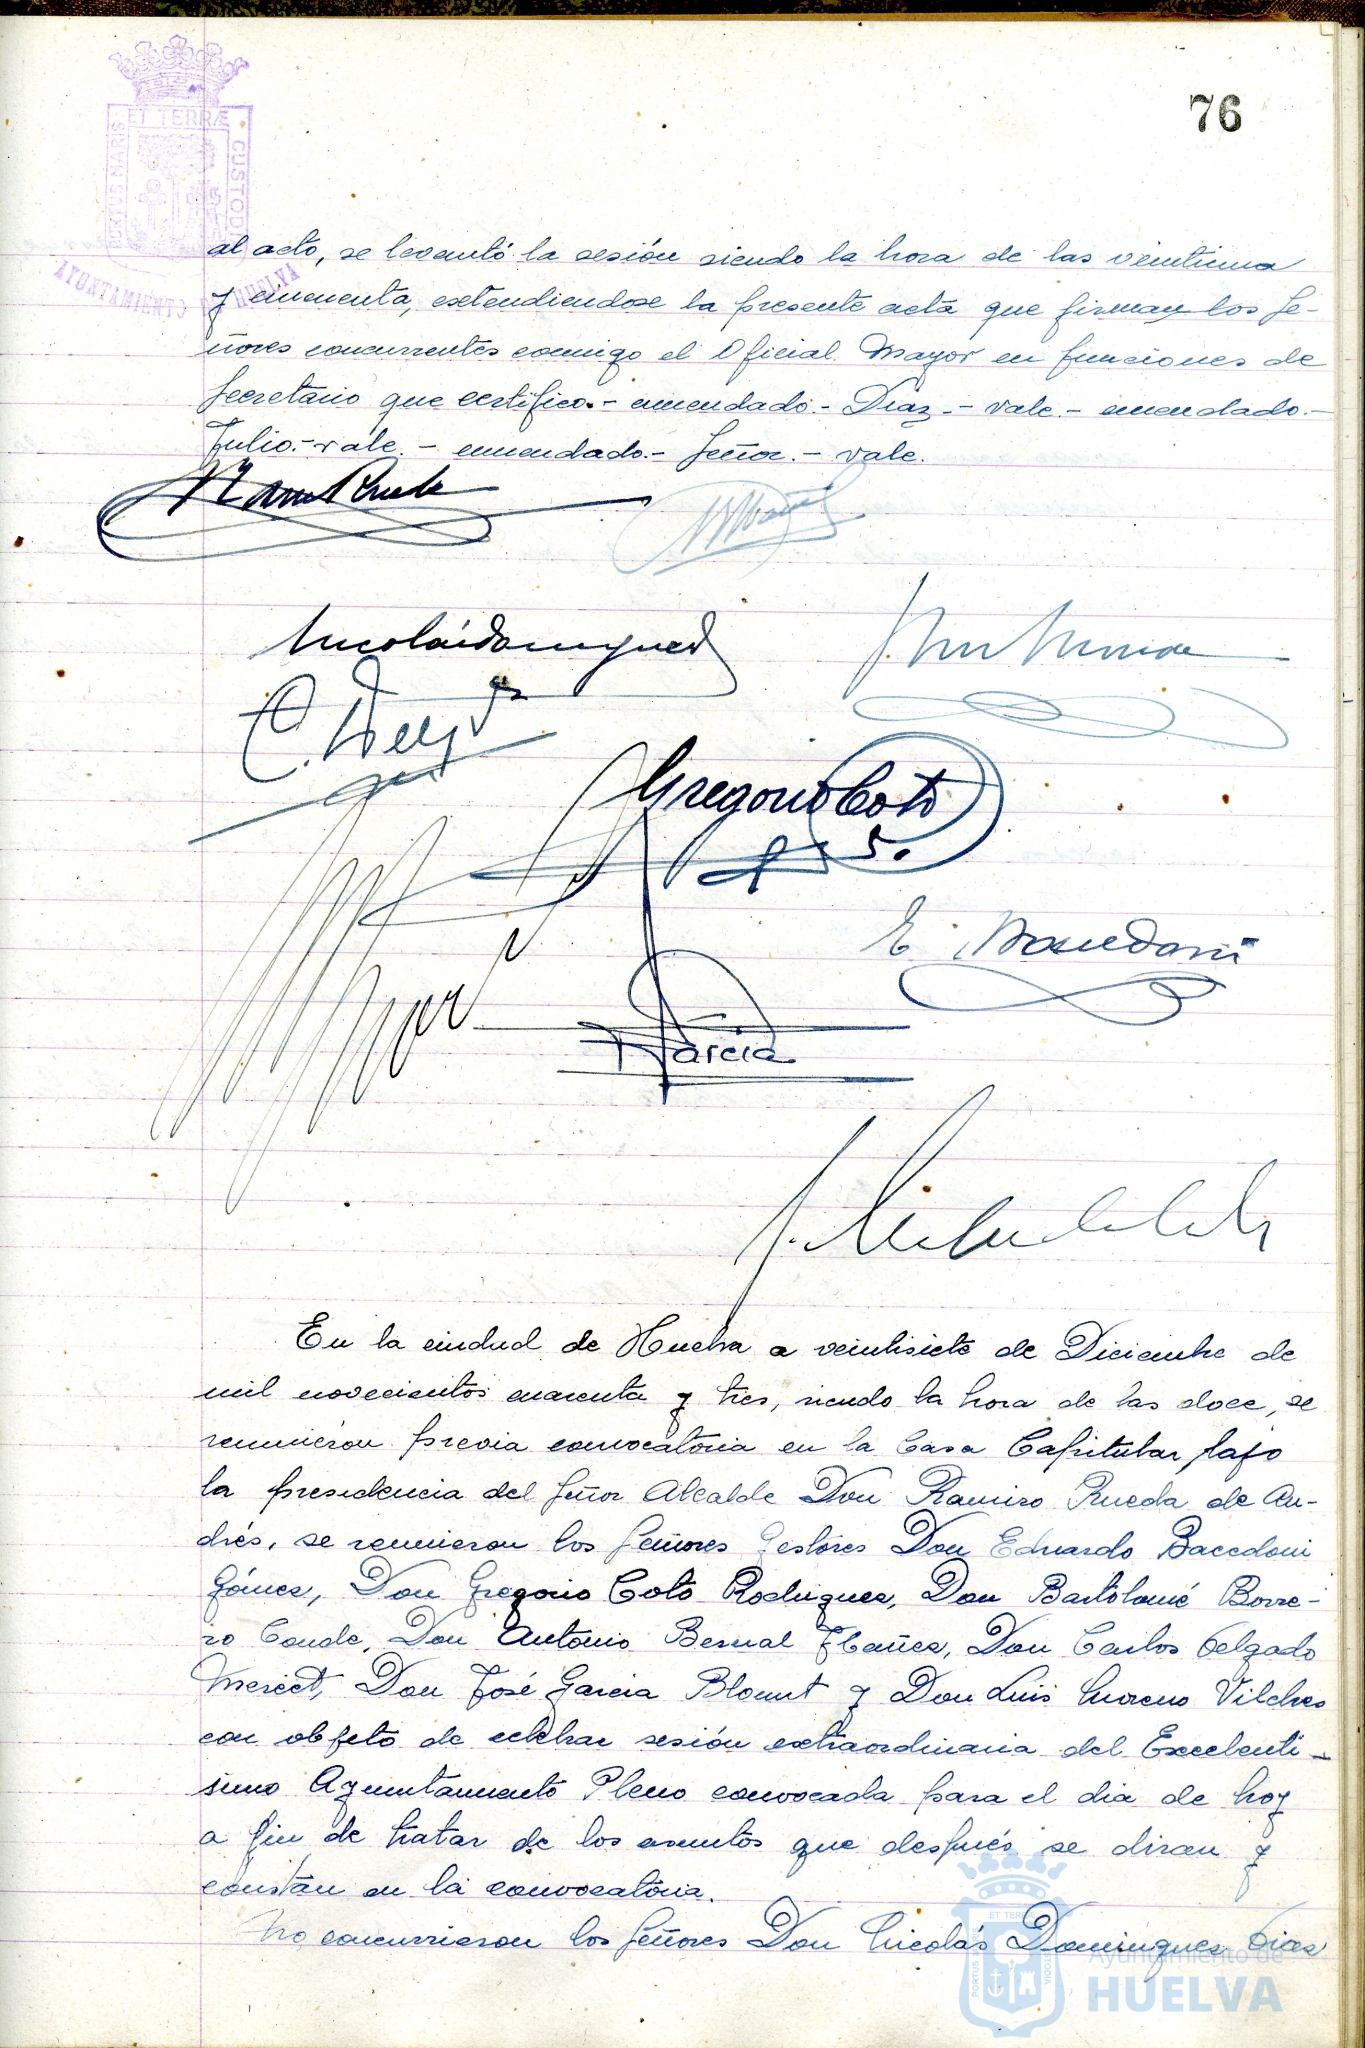 76
ET TERRÆ
PORTUS MARIS
CUSTODIA
AYUNTAMIENTO DE HUELVA
al acto, se levantó la sesión siendo la hora de las veintiuna
y cincuenta, extendiendose la presente acta que firman los Se-
ñores concurrentes conmigo el Oficial Mayor en funciones de
Secretario que certifico.- enmendado.- Diaz.- vale.- enmendado.-
Julio.- vale.- enmendado.- Señor.- vale.
Nicolás Dominguez
Gregorio Coto
E. Bacedoni
Garcia
En la ciudad de Huelva a veintisiete de Diciembre de
mil novecientos cuarenta y tres, siendo la hora de las doce, se
reunieron previa convocatoria en la Casa Capitular bajo
la presidencia del Señor Alcalde Don Ramiro Rueda de An-
drés, se reunieron los Señores Gestores Don Eduardo Bacedoni
Gómez, Don Gregorio Coto Rodriguez, Don Bartolomé Borre-
ro Conde, Don Antonio Bernal Ibañez, Don Carlos Delgado
Mercet, Don José Garcia Blount y Don Luis Moreno Vilches
con objeto de celebrar sesión extraordinaria del Excelenti-
simo Ayuntamiento Pleno convocada para el dia de hoy
a fin de tratar de los asuntos que después se diran y
constan en la convocatoria.
No concurrieron los Señores Don Nicolás Dominguez Diaz
Ayuntamiento de
HUELVA